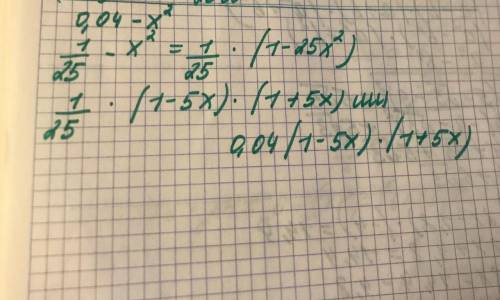 0,04 - x²
1/25 - x² = 1/25 · (1-25x²)
1/25 · (1-5x) · (1+5x) или
0,04 (1-5x) · (1+5x)